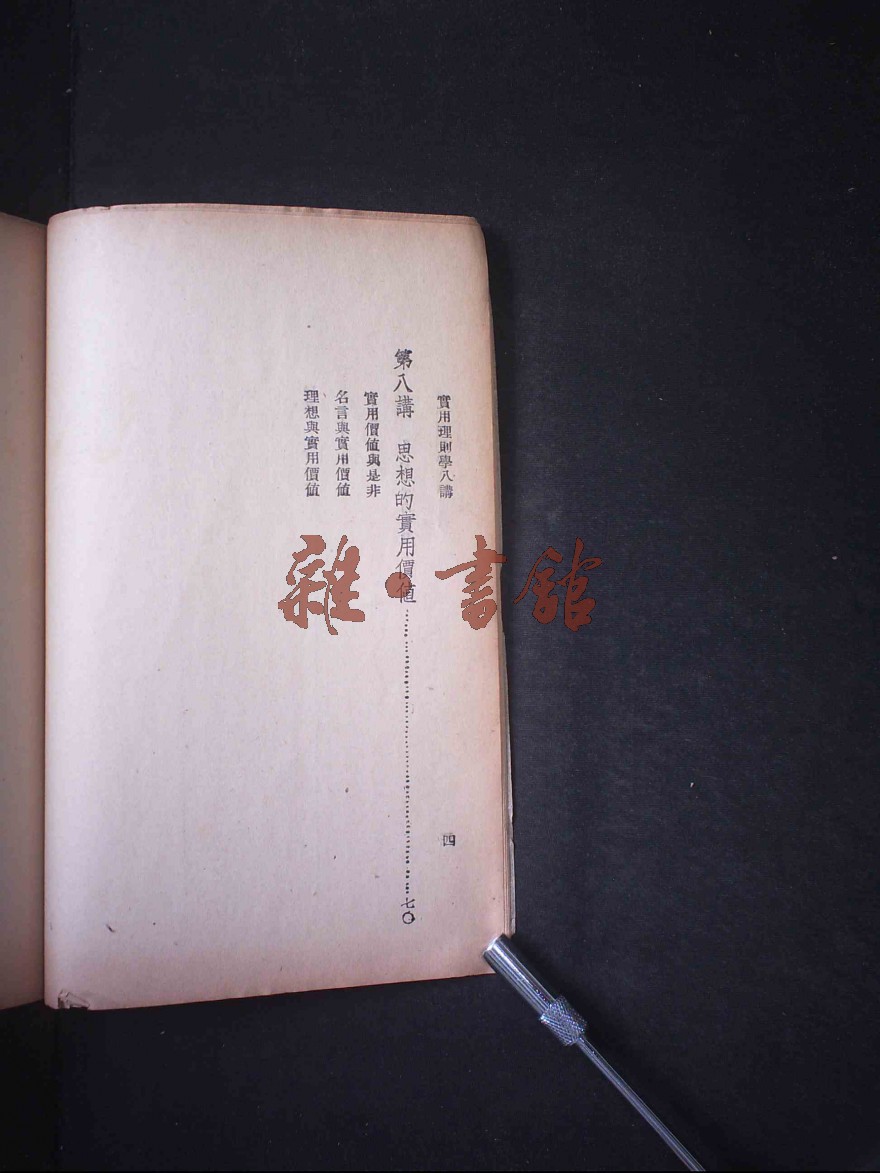 實用理則學八講
四
第八講　思想的實用價值……………………七〇
實用價值與是非
名言與實用價值
理想與實用價值
雜·書館